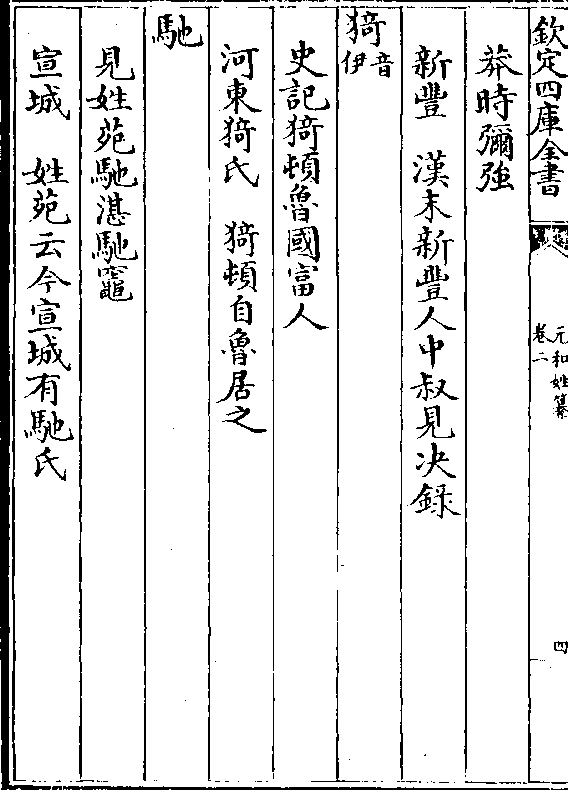 欽定四庫全書
元和姓纂
卷二
四
莽時彌強
新豐　漢末新豐人中叔見決錄
猗音伊
史記猗頓魯國富人
河東猗氏　猗頓自魯居之
馳
見姓苑馳湛馳竈
宣城　姓苑云今宣城有馳氏